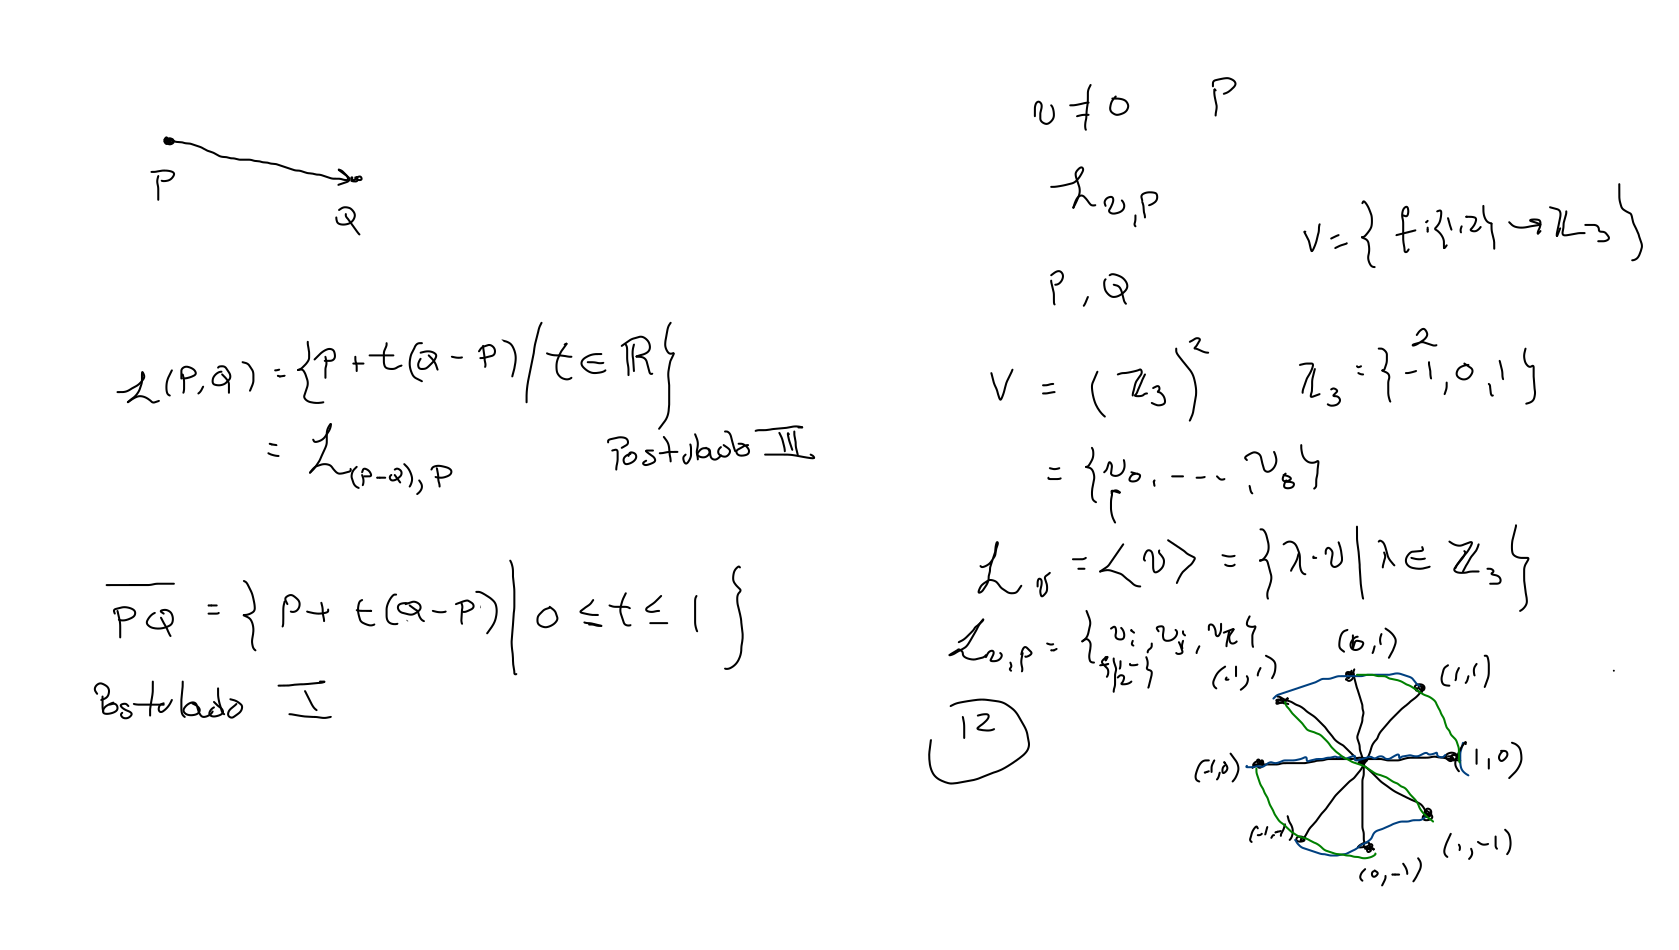 P
Q
ℒ(P,Q) = {P + t(Q - P) / t ∈ ℝ}
= ℒ(P-Q), P
Postulado III
PQ = { P + t(Q-P) | 0 ≤ t ≤ 1 }
Postulado I
v ≠ 0 P
ℒv,P
V = { f:{1,2} → ℤ3 }
P, Q
V = (ℤ3)²
2
ℤ3 = {-1, 0, 1}
= {v0, ----, v8}
ℒv = <v> = {λ·v | λ ∈ ℤ3}
ℒv,P = {vi, vj, vk}
12
(0,1)
(-1,1)
(1,1)
(-1,0)
(1,0)
(-1,-1)
(1,-1)
(0,-1)